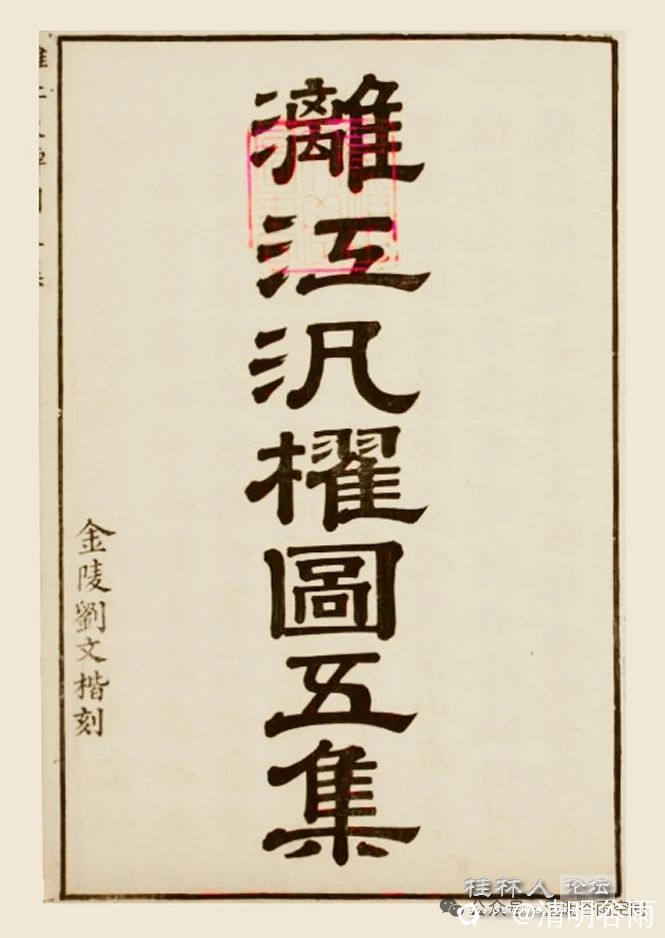 灕江汎櫂圖五集
金陵劉文楷刻
桂林人论坛
公众号·清明谷雨空间
@清明谷雨